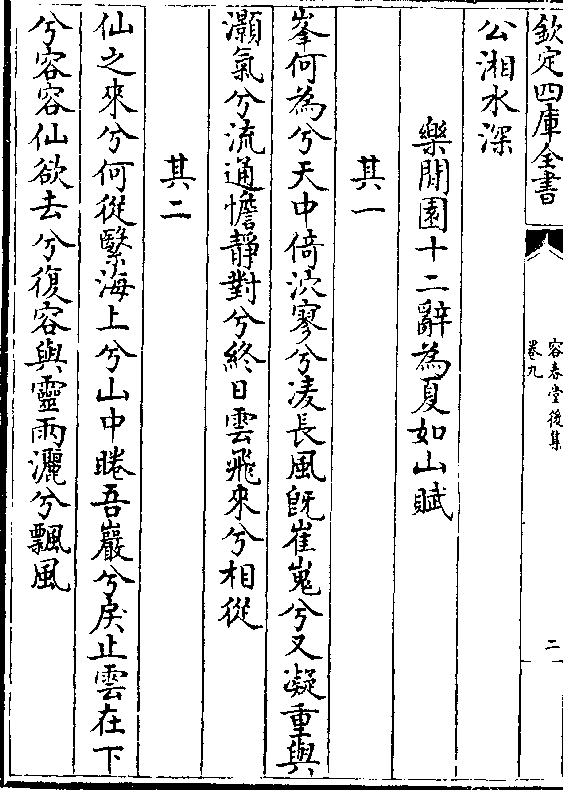 欽定四庫全書
容春堂後集
卷九
二
公湘水深
樂閒園十二辭為夏如山賦
其一
峯何為兮天中倚泬寥兮凌長風旣崔嵬兮又凝重與
灝氣兮流通憺靜對兮終日雲飛來兮相從
其二
仙之來兮何從繄海上兮山中睠吾巖兮戾止雲在下
兮容容仙欲去兮復容與靈雨灑兮飄風